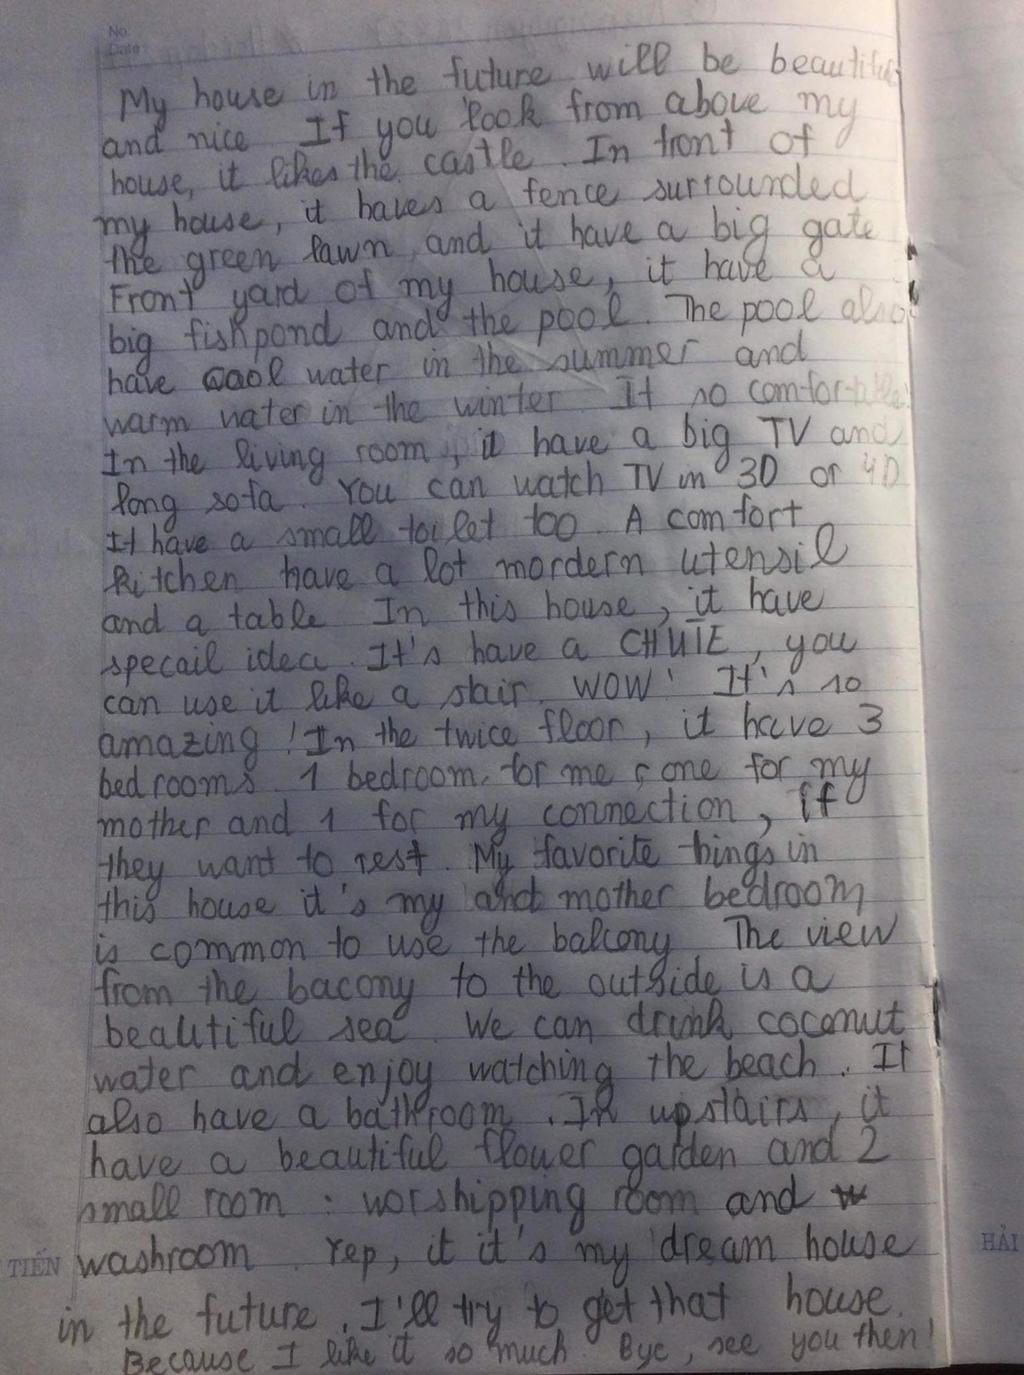 No.
Date
My house in the future will be beautiful
and nice. If you look from above my
house, it likes the castle. In front of
my house, it haves a fence surrounded
the green lawn and it have a big gate
Front yard of my house, it have a
big fishpond and the pool. The pool also
have cool water in the summer and
warm water in the winter It so comfortable
In the living room, it have a big TV and
long sofa. You can watch TV in 3D or 4D
It have a small toilet too. A comfort
kitchen have a lot mordern utensil
and a table In this house, it have
specail idea. It's have a CHUTE, you
can use it like a stair. WOW! It's so
amazing! In the twice floor, it have 3
bedrooms. 1 bedroom for me, one for my
mother and 1 for my connection, if
they want to rest. My favorite things in
this house it's my and mother bedroom
is common to use the balcony The view
from the bacony to the outside is a
beautiful sea. We can drink coconut
water and enjoy watching the beach. It
also have a bathroom. In upstairs, it
have a beautiful flower garden and 2
small room: worshipping room and
washroom. Yep, it it's my dream house
in the future. I'll try to get that house.
Because I like it so much. Bye, see you then!
TIẾN
HẢI